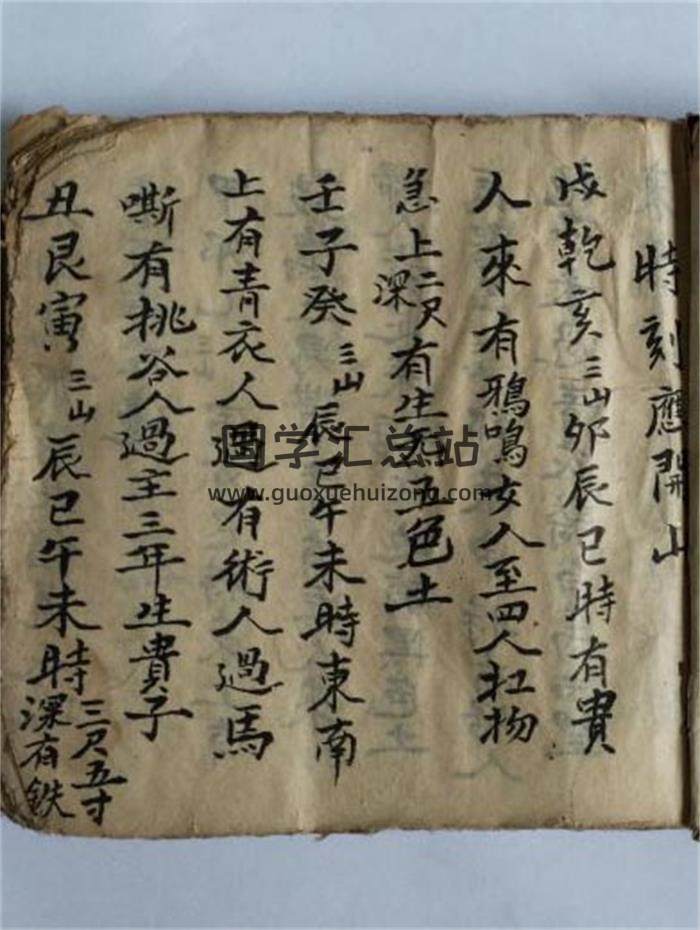 時刻應開山
戌乾亥三山夘辰巳時有貴
人來有鴉鳴女人至四人扛物
急上二尺深有生炁五色土
壬子癸三山辰巳午未時東南
上有青衣人過有術人過馬
嘶有挑谷人過主三年生貴子
丑艮寅三山辰巳午未時三尺五寸深有鉄
国学汇总站
www.guoxuehuizong.com